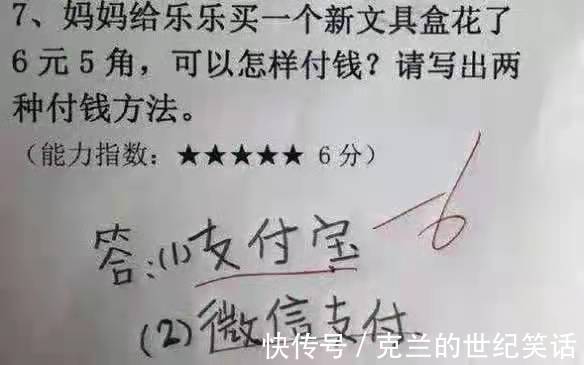 7、妈妈给乐乐买一个新文具盒花了
6元5角，可以怎样付钱？请写出两
种付钱方法。
（能力指数：★★★★★ 6分）
-6
答：(1)支付宝
(2)微信支付.
快传号／克兰的世纪笑话